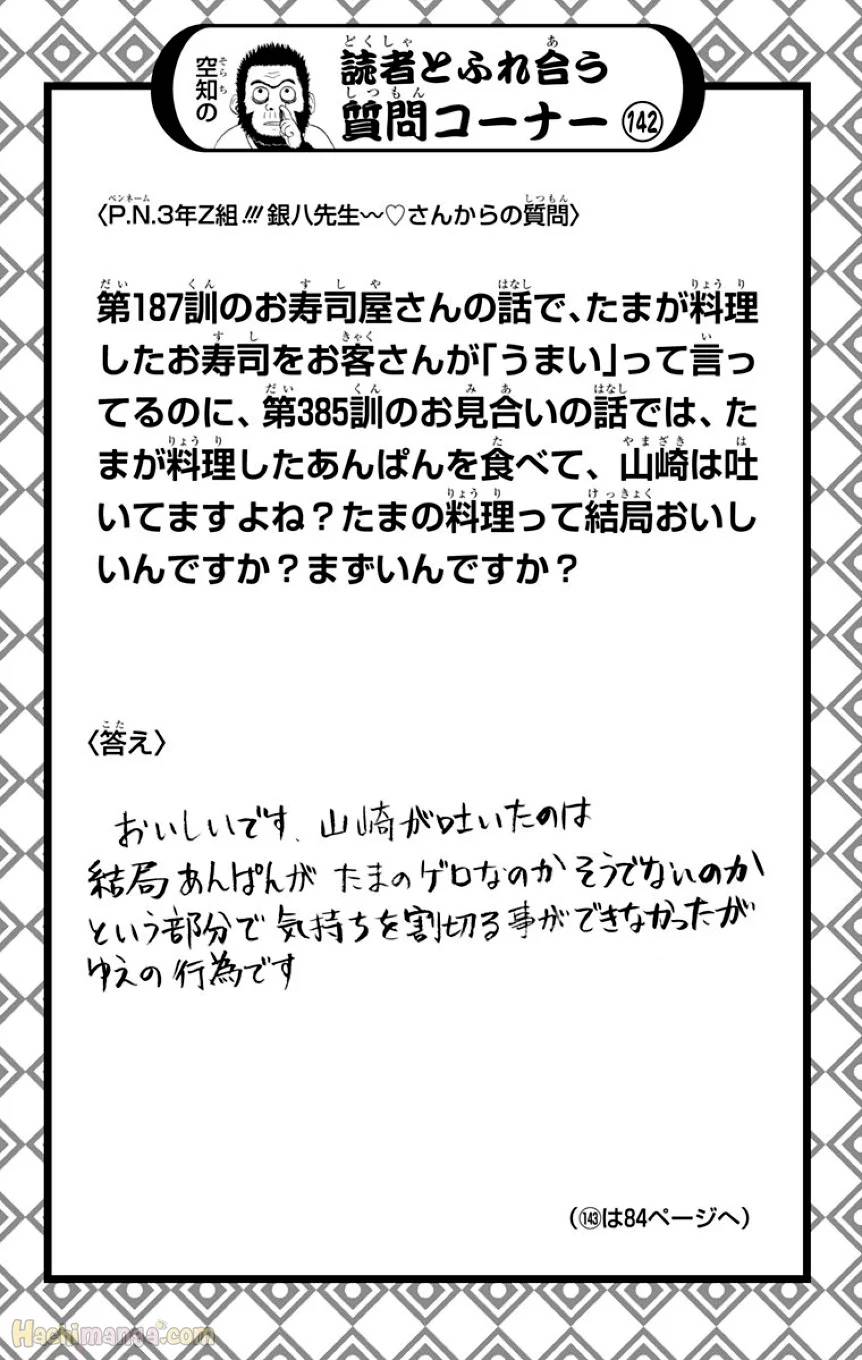 空知の
読者とふれ合う
質問コーナー 142
〈P.N.3年Z組!!!銀八先生〜♡さんからの質問〉
第187訓のお寿司屋さんの話で、たまが料理
したお寿司をお客さんが「うまい」って言っ
てるのに、第385訓のお見合いの話では、た
まが料理したあんぱんを食べて、山崎は吐
いてますよね？たまの料理って結局おいし
いんですか？まずいんですか？
〈答え〉
おいしいです、山崎が吐いたのは
結局あんぱんが たまのゲロなのか そうでないのか
という部分で 気持ちを割切る事ができなかったが
ゆえの 行為です
（143は84ページへ）
Hachimanga.com